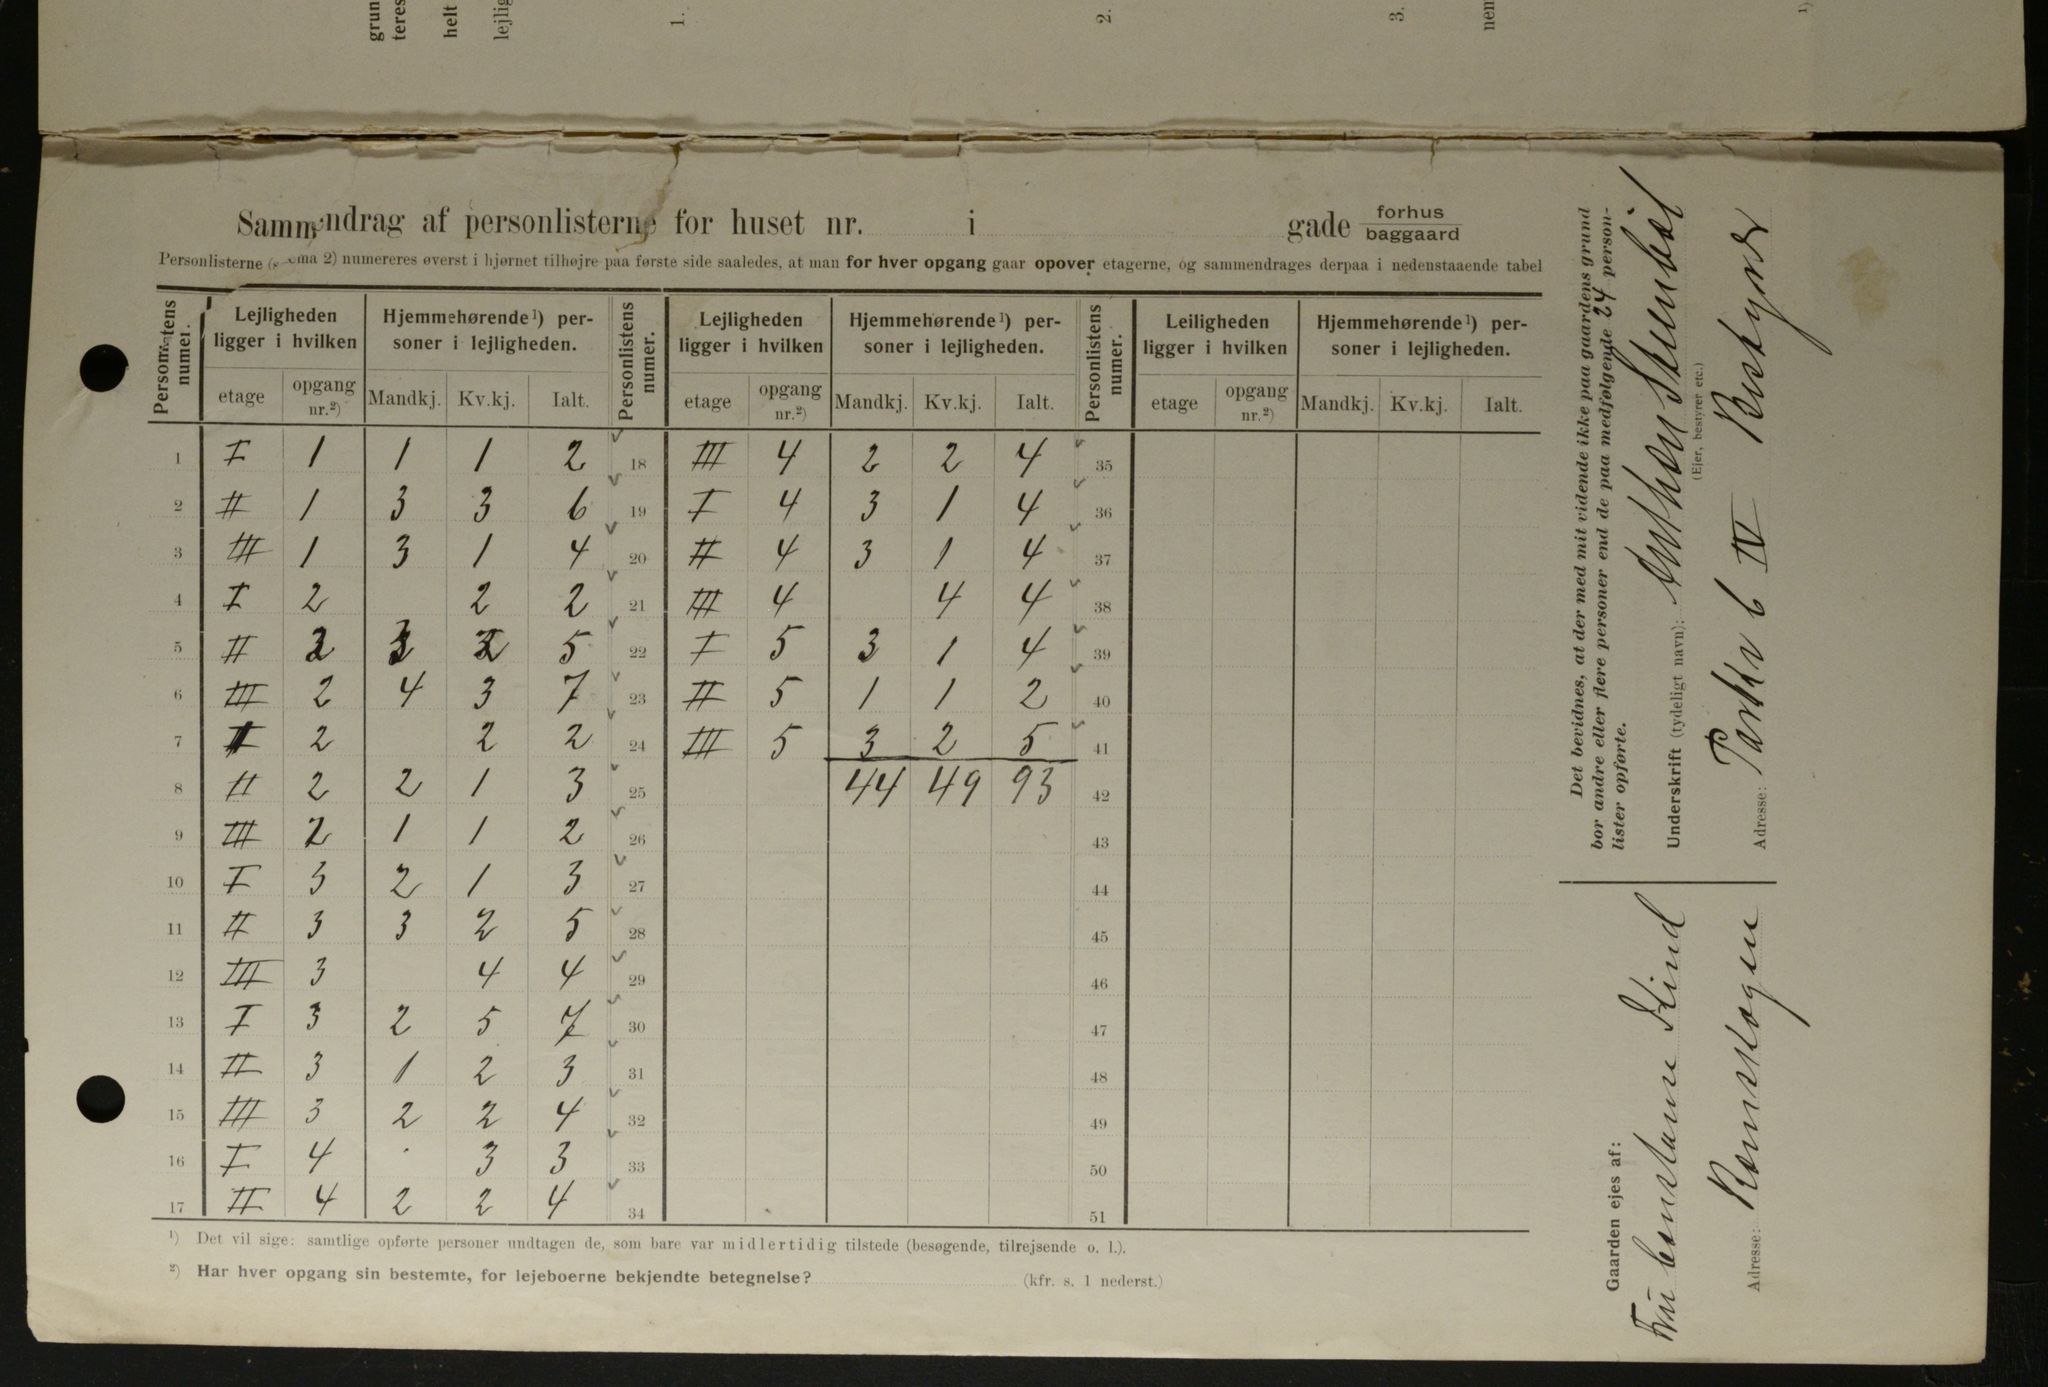 grun
teres
helt
lejlig
1.
2.
3.
nen
1)
Sammendrag af personlisterne for huset nr. i gade forhus
baggaard
Personlisterne numereres øverst i hjørnet tilhøjre paa første side saaledes, at man for hver opgang gaar opover etagerne, og sammendrages derpaa i nedenstaaende tabel
Personlistens numer. | Lejligheden ligger i hvilken | Hjemmehørende 1) personer i lejligheden. | Personlistens numer. | Lejligheden ligger i hvilken | Hjemmehørende 1) personer i lejligheden. | Personlistens numer. | Leiligheden ligger i hvilken | Hjemmehørende 1) personer i lejligheden.
etage | opgang nr.2) | Mandkj. | Kv.kj. | Ialt. | etage | opgang nr.2) | Mandkj. | Kv.kj. | Ialt. | etage | opgang nr.2) | Mandkj. | Kv.kj. | Ialt.
1 I 1 1 1 2 18 III 4 2 2 4 35
2 II 1 3 3 6 19 I 4 3 1 4 36
3 III 1 3 1 4 20 II 4 3 1 4 37
4 I 2 2 2 21 III 4 4 4 38
5 II 2 3 2 5 22 I 5 3 1 4 39
6 III 2 4 3 7 23 II 5 1 1 2 40
7 I 2 2 2 24 III 5 3 2 5 41
8 II 2 2 1 3 25 44 49 93 42
9 III 2 1 1 2 26 43
10 I 3 2 1 3 27 44
11 II 3 3 2 5 28 45
12 III 3 4 4 29 46
13 I 3 2 5 7 30 47
14 II 3 1 2 3 31 48
15 III 3 2 2 4 32 49
16 I 4 3 3 33 50
17 II 4 2 2 4 34 51
1) Det vil sige: samtlige opførte personer undtagen de, som bare var midlertidig tilstede (besøgende, tilrejsende o. l.).
2) Har hver opgang sin bestemte, for lejeboerne bekjendte betegnelse? (kfr. s. 1 nederst.)
Det bevidnes, at der med mit vidende ikke paa gaardens grund
bor andre eller flere personer end de paa medfølgende 24 person-
lister opførte.
Underskrift (tydeligt navn):
(Ejer, bestyrer etc.)
Adresse: Parkv 6 IV Bestyrer
Gaarden ejes af:
Fru Constance Kind
Adresse: Rømskogen